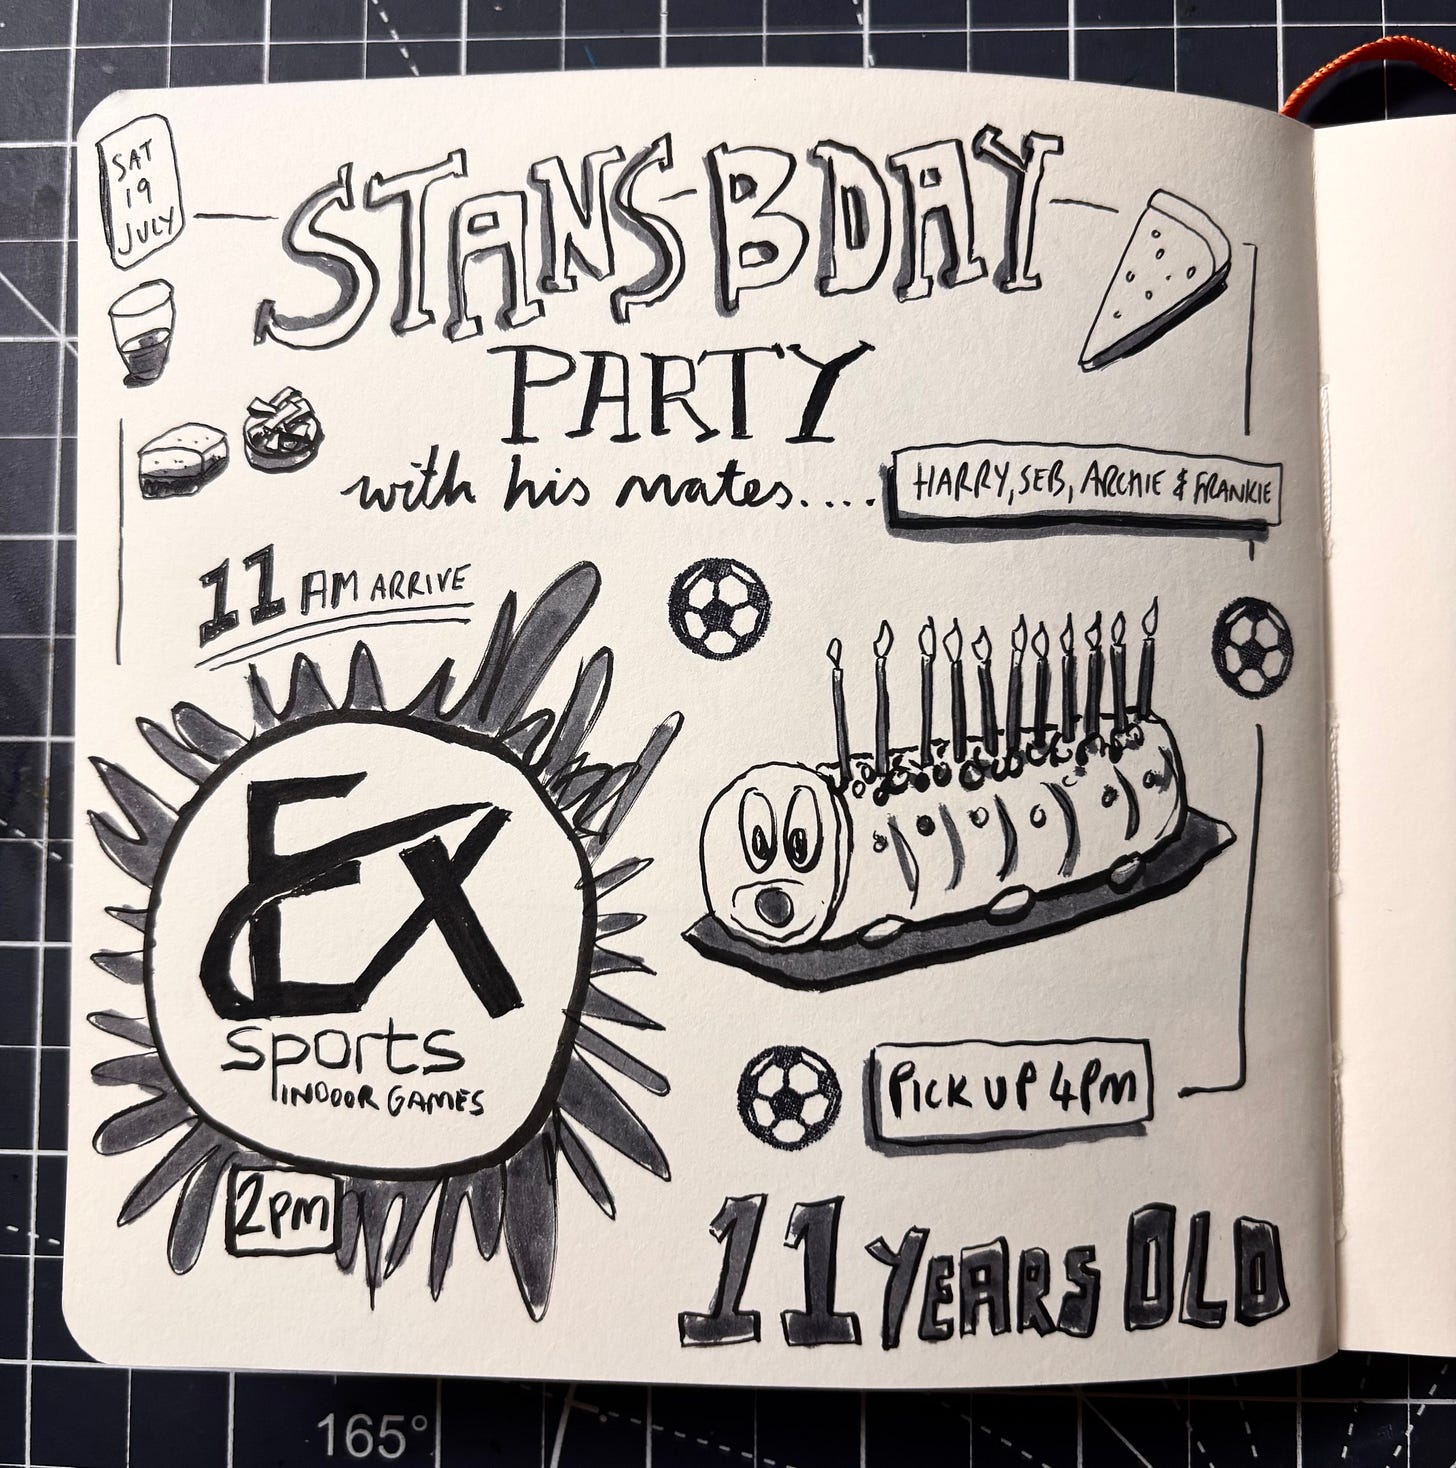 SAT
19
JULY
STANS BDAY
PARTY
with his mates....
HARRY, SEB, ARCHIE & FRANKIE
11 AM ARRIVE
EX
sports
INDOOR GAMES
2PM
PICK UP 4PM
11 YEARS OLD
165°